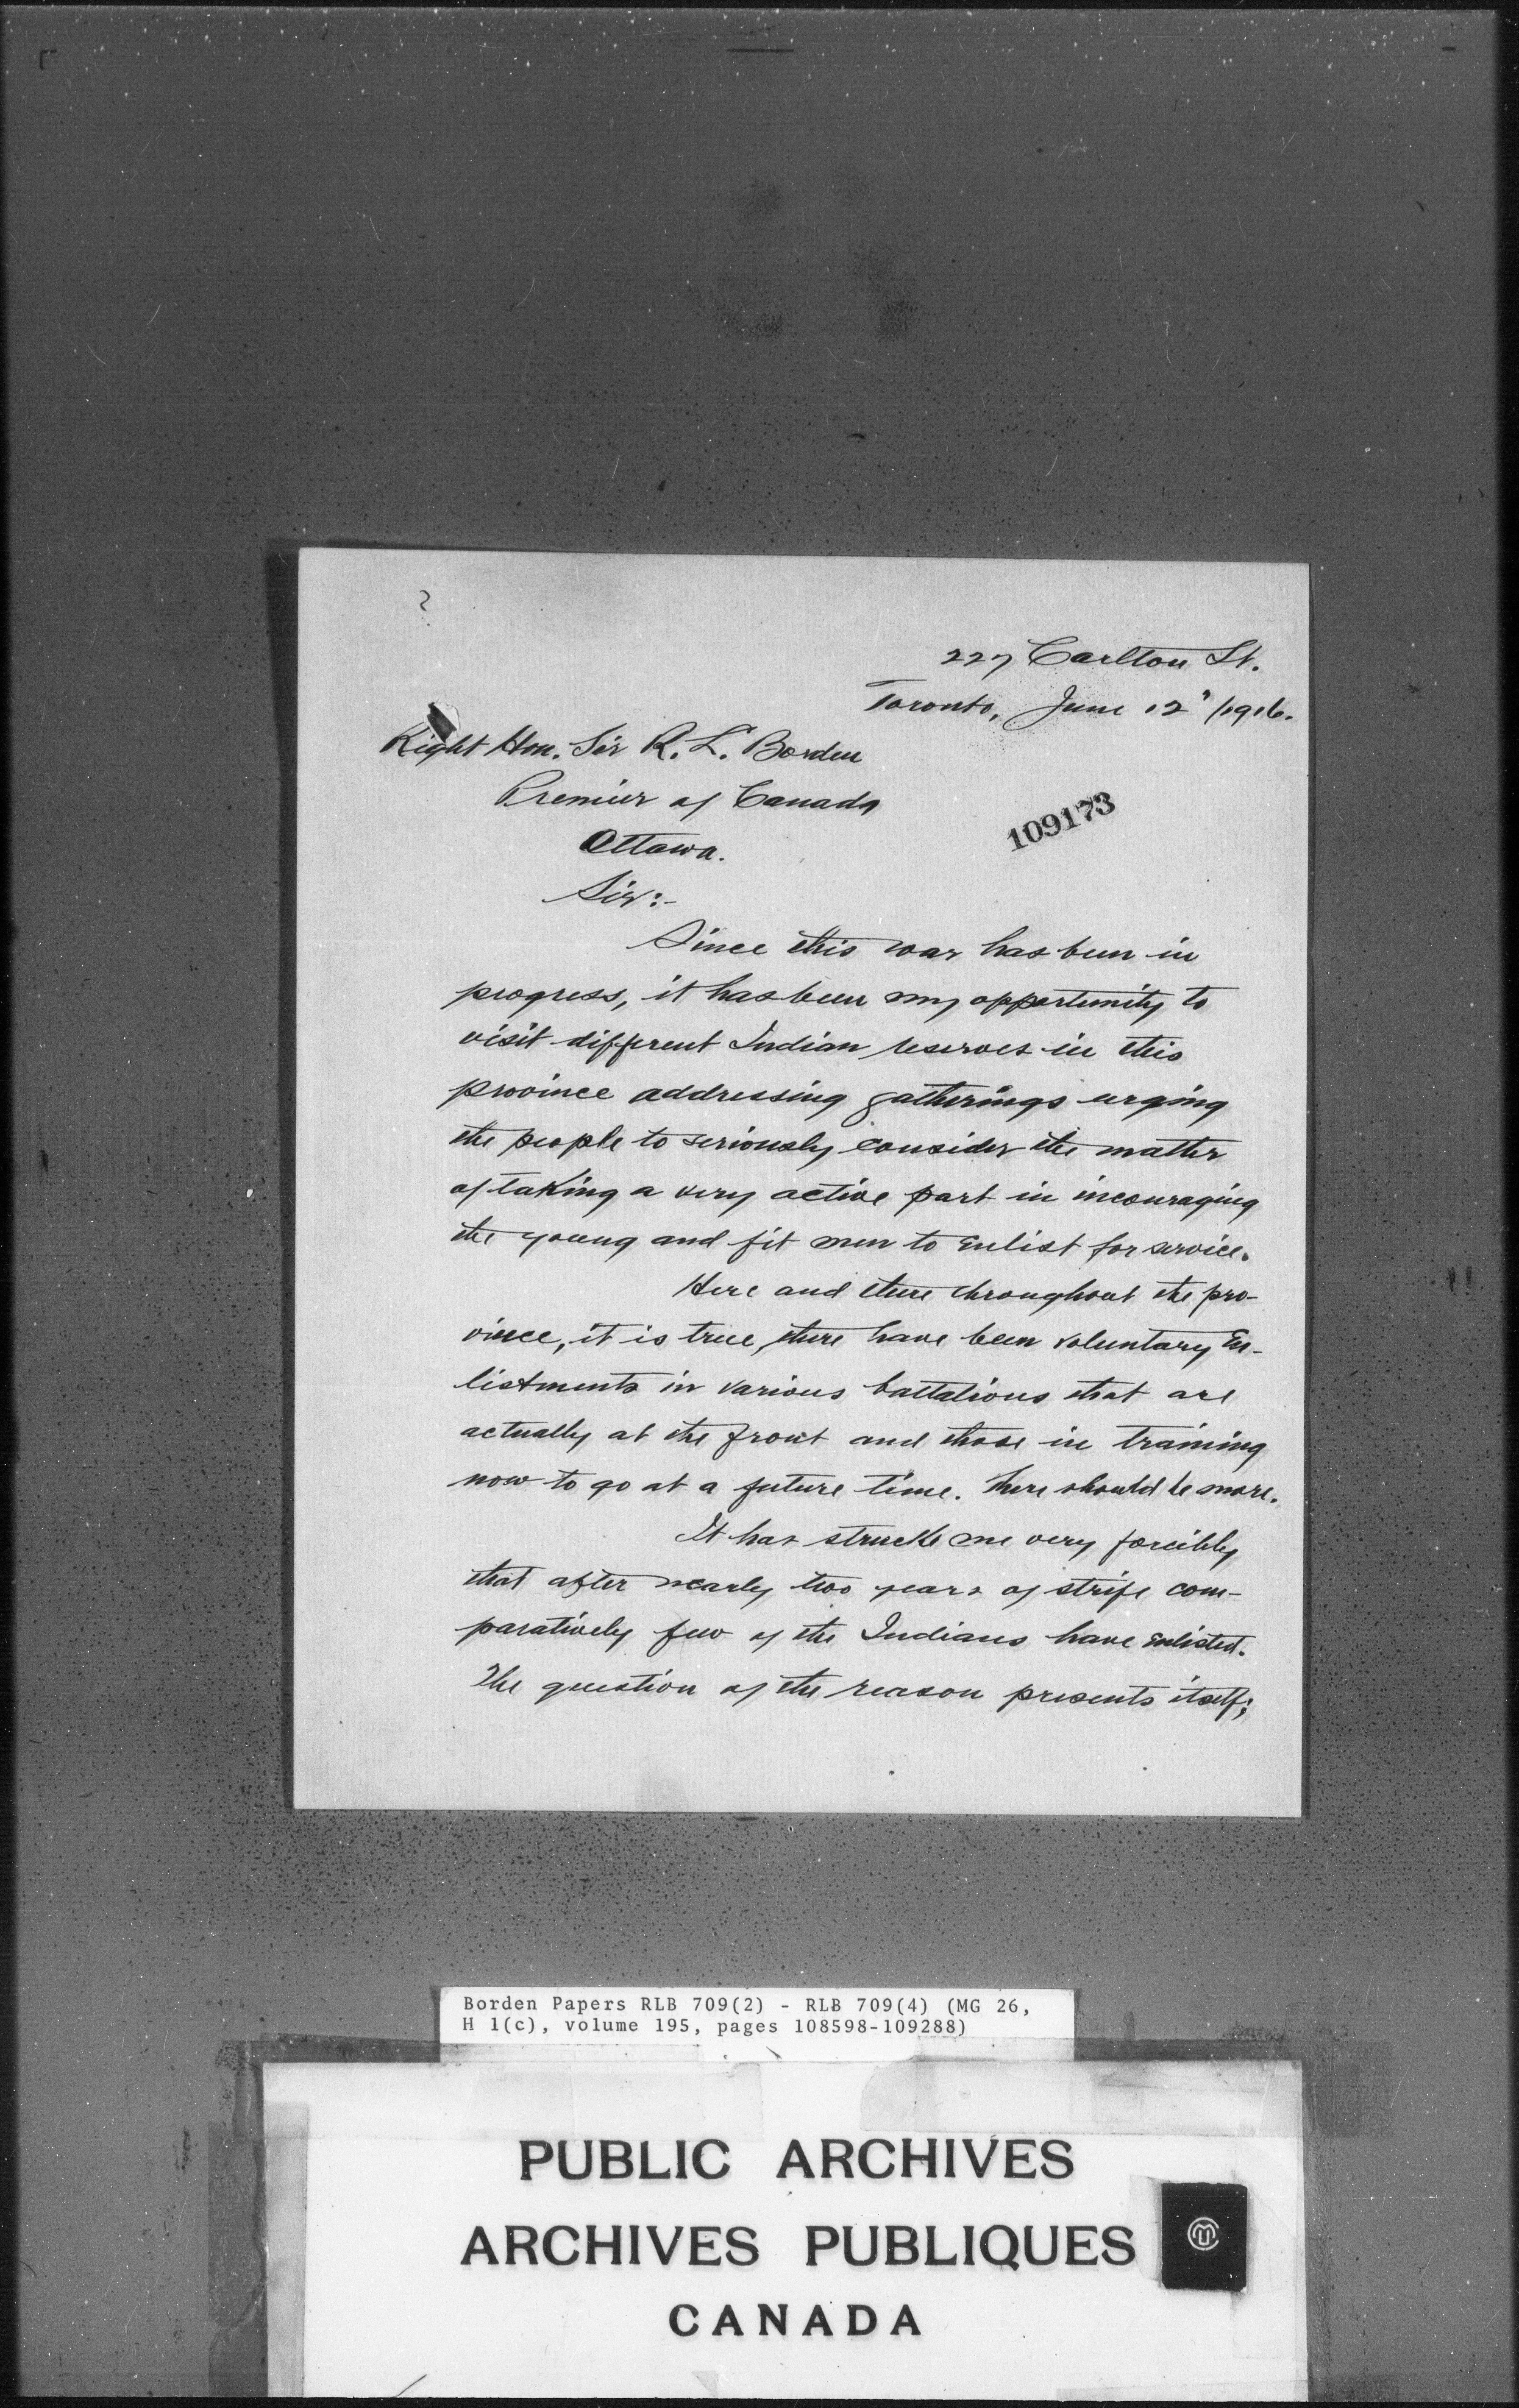 227 Carlton St.
Toronto, June 12" /1916.
Right Hon. Sir R. L. Borden
Premier of Canada
109173
Ottawa.
Sir:-
Since this war has been in
progress, it has been my opportunity to
visit different Indian reserves in this
province addressing gatherings urging
the people to seriously consider the matter
of taking a very active part in incouraging
the young and fit men to enlist for service.
Here and there throughout the pro-
vince, it is true, there have been voluntary en-
listments in various battalions that are
actually at the front and those in training
now to go at a future time. There should be more.
It has struck me very forcibly
that after nearly two years of strife com-
paratively few of the Indians have enlisted.
The question of the reason presents itself;
Borden Papers RLB 709(2) - RLB 709(4) (MG 26,
H 1(c), volume 195, pages 108598-109288)
PUBLIC ARCHIVES
ARCHIVES PUBLIQUES
CANADA